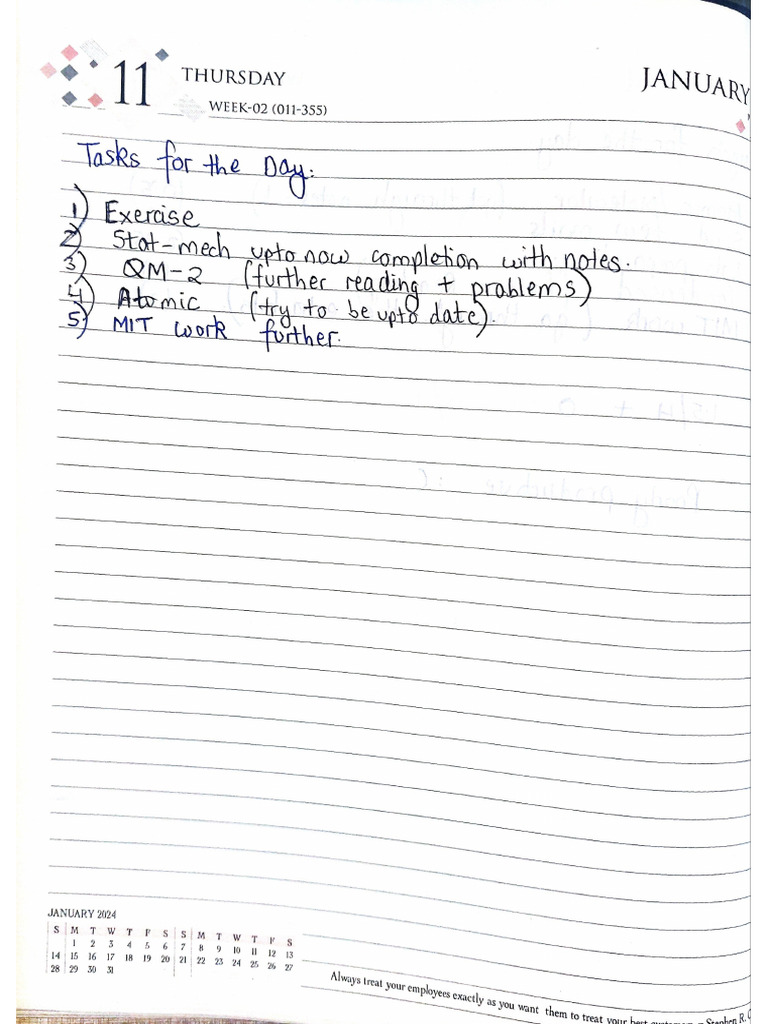 11 THURSDAY JANUARY
WEEK-02 (011-355)
Tasks for the Day:
1) Exercise
2) Stat-mech upto now completion with notes.
3) QM-2 (further reading + problems)
4) Atomic (try to be upto date).
5) MIT work further.
JANUARY 2024
S M T W T F S S M T W T F S
1 2 3 4 5 6 7 8 9 10 11 12 13
14 15 16 17 18 19 20 21 22 23 24 25 26 27
28 29 30 31
Always treat your employees exactly as you want them to treat your best customers - Stephen R.